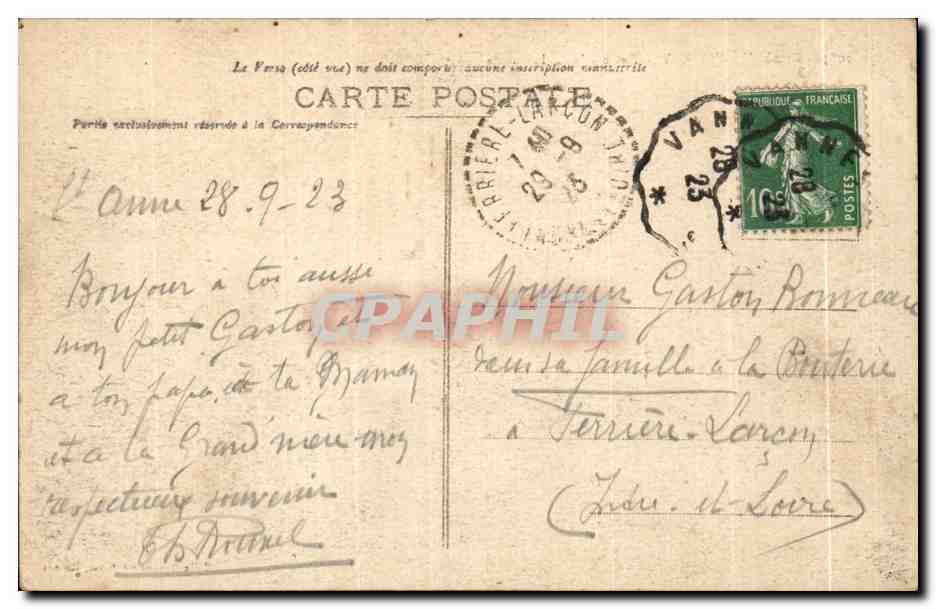 Le Verso (côté vue) ne doit comporter aucune inscription manuscrite
CARTE POSTALE
Partie exclusivement réservée à la Correspondance
FERRIÈRE-LARÇON
29 -9
23
VANNE
28
23
VANNE
28
23
REPUBLIQUE FRANÇAISE
10c
POSTES
St Anne 28.9-23
Bonjour à toi aussi
mon petit Gaston et
a ton papa, et ta Maman
et a la Grand'mère mon
respectueux souvenir
CPAPHIL
Monsieur Gaston Bonneau
dans sa famille a la Bouterie
a Ferrière-Larçon
(Indre-et-Loire)